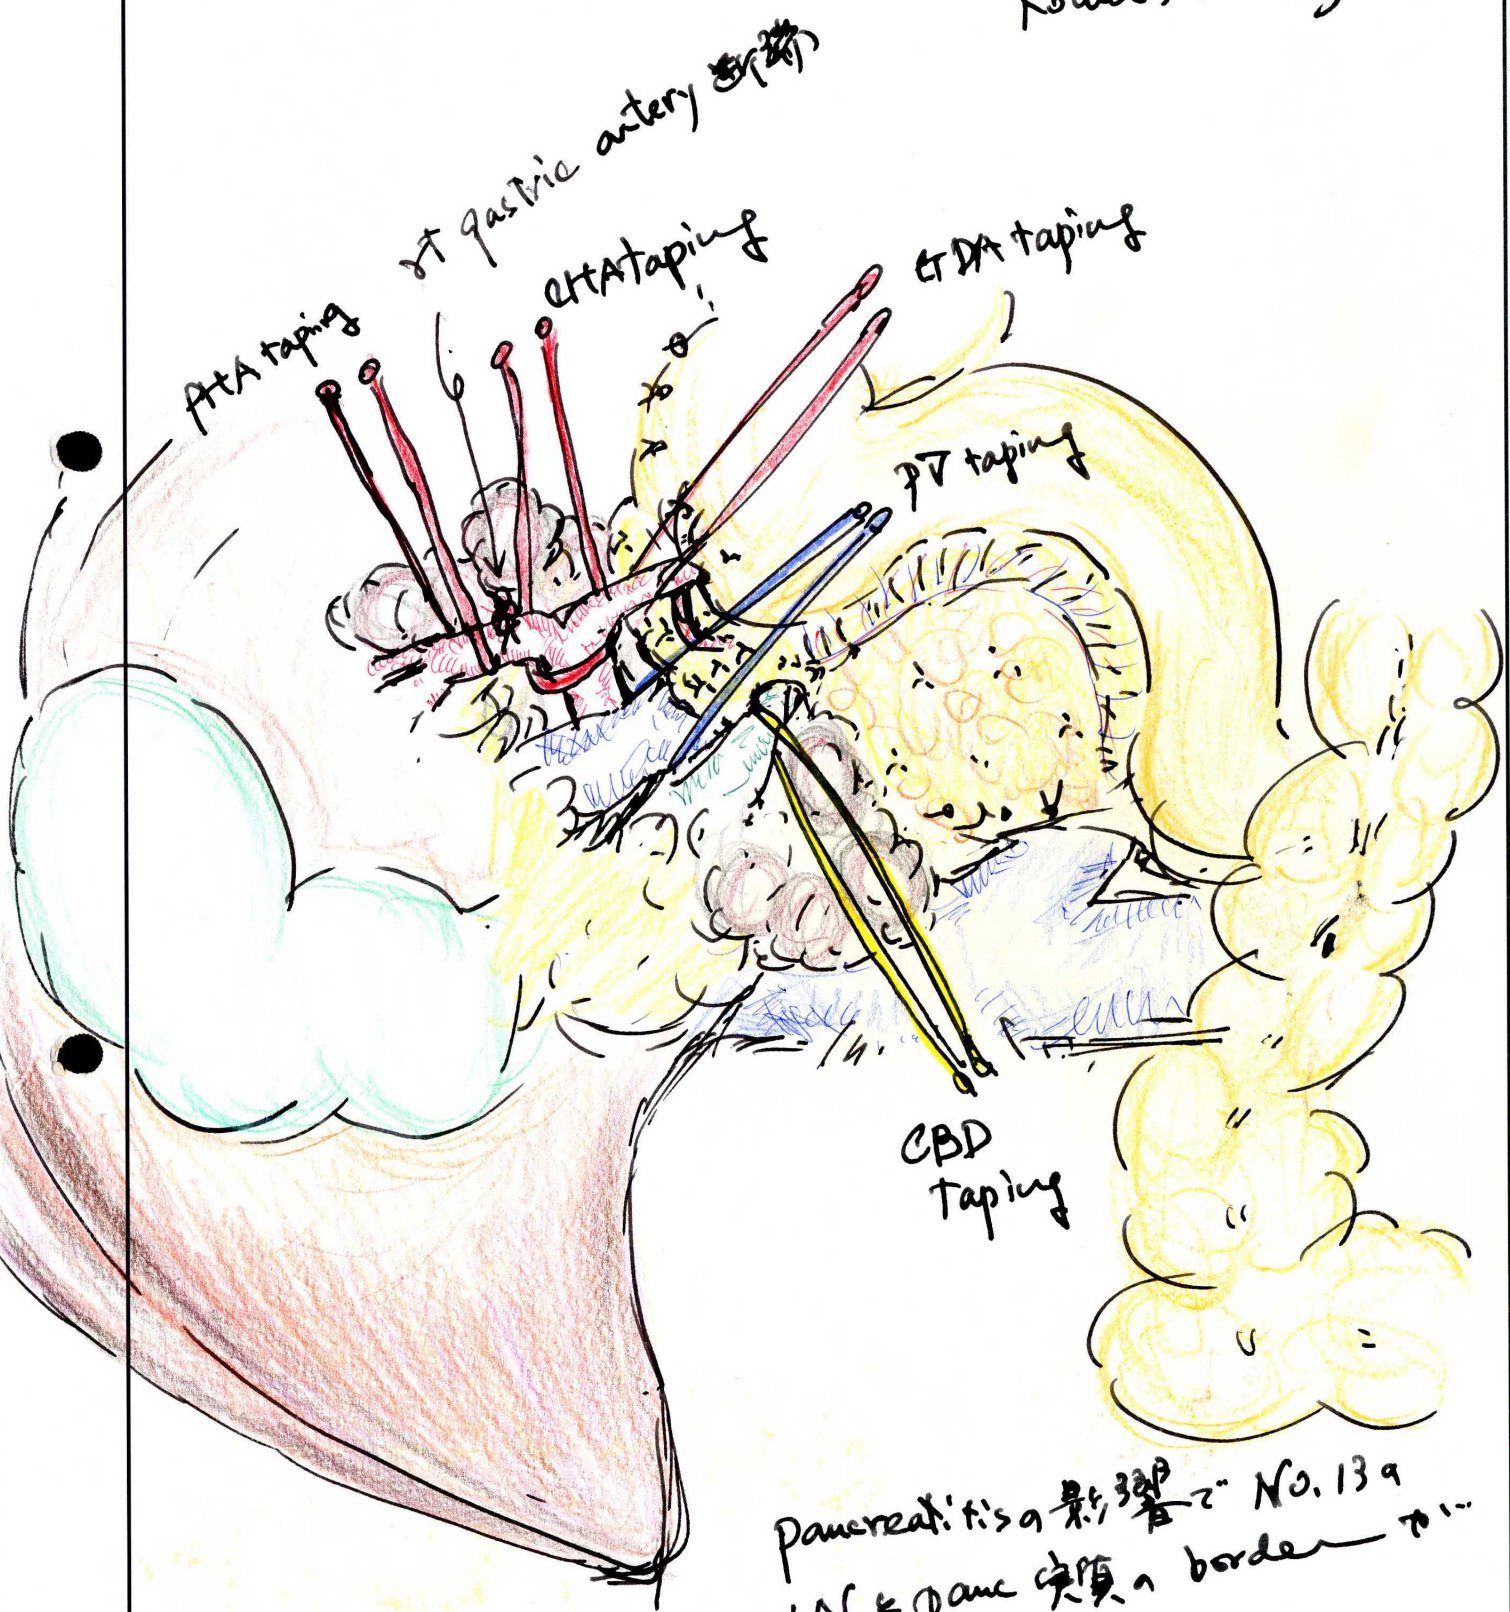 rt gastric artery 断端
CHA taping
GDA taping
PHA taping
PV taping
CBD
taping
pancreatitisの影響で No.13a
panc 実質の border が…